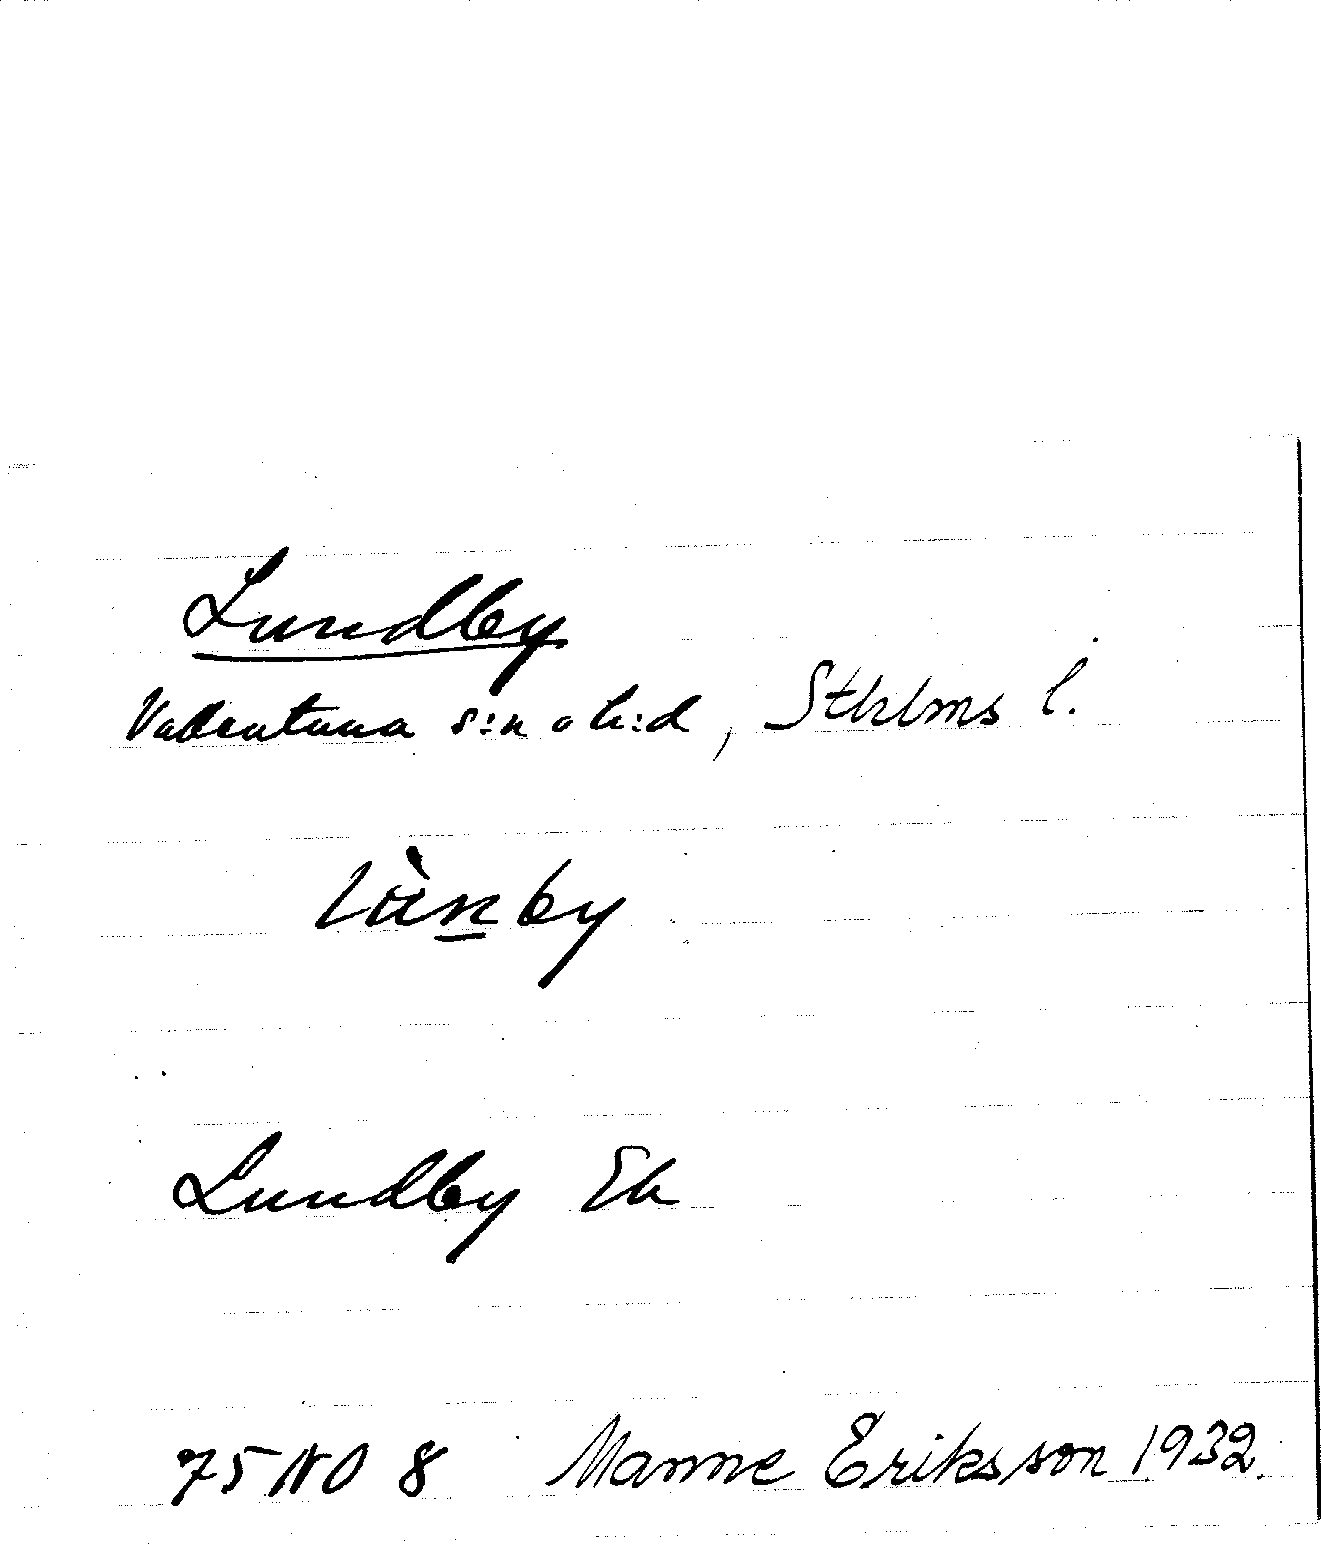 Lundby
Vallentuna s:n o h:d, Sthlms l.
lùn̲by
Lundby Eb
75 NO 8 Manne Eriksson 1932.